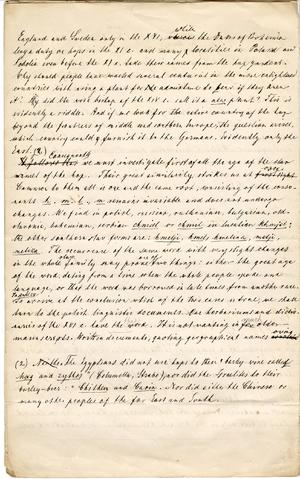 England and Sweden only in the XVI, while the Dansig to Bernin
levy a duty on hops in the XI c. and many localities in Poland and
Podolia even before the XI c. take their names from the hop gardens.
Why should people have waited several centuries in the more enlightened
countries with using a plant for the admixture to beer if they drew
it? Why did the work bishop of the XIV c. call it a new plant? This is
evidently a riddle. And if we look for the native country of the hop
beyond the frontiers of middle and northern Europe, the question arises
which country could furnish it to the Germans. Evidently only the
East. (2)
Consequently
we must investigate first of all the age of the slav
names of the hop. Their great similarity strikes us at once
Common to them all is one and the same root, consisting of the conso-
nants h, m, l, m remains invariable and does not undergo
changes. We find in polish, russian, ruthenian, bulgarian, old-
chronic, bohemian, serbian chmiel or chmil in lusatian khmjel;
the other southern slav forms are hmelji, hmelj
melika. The recurrence of the same word with very slight changes
in the whole slav family may prove two things: either the great age
of the word, dating from a time when the whole people spoke one
language, or that the word was borrowed in late times from another race.
To arrive at the conclusion which of the two cases is true, we shall
have to the polish linguistic documents. Our herbariums and diction-
aries of the XVI c. have the word. It is not wanting in far older
manuscripts. Written documents, quoting geographical names owing
(2) Neither the Egyptians did not use hops to their barley-wine called
hag and zythos (Columella, Strabo) nor did the Israelites to their
barley-beer: Chikhar and Cusin. Nor did either the Chinese or
many other peoples of the far East and South.